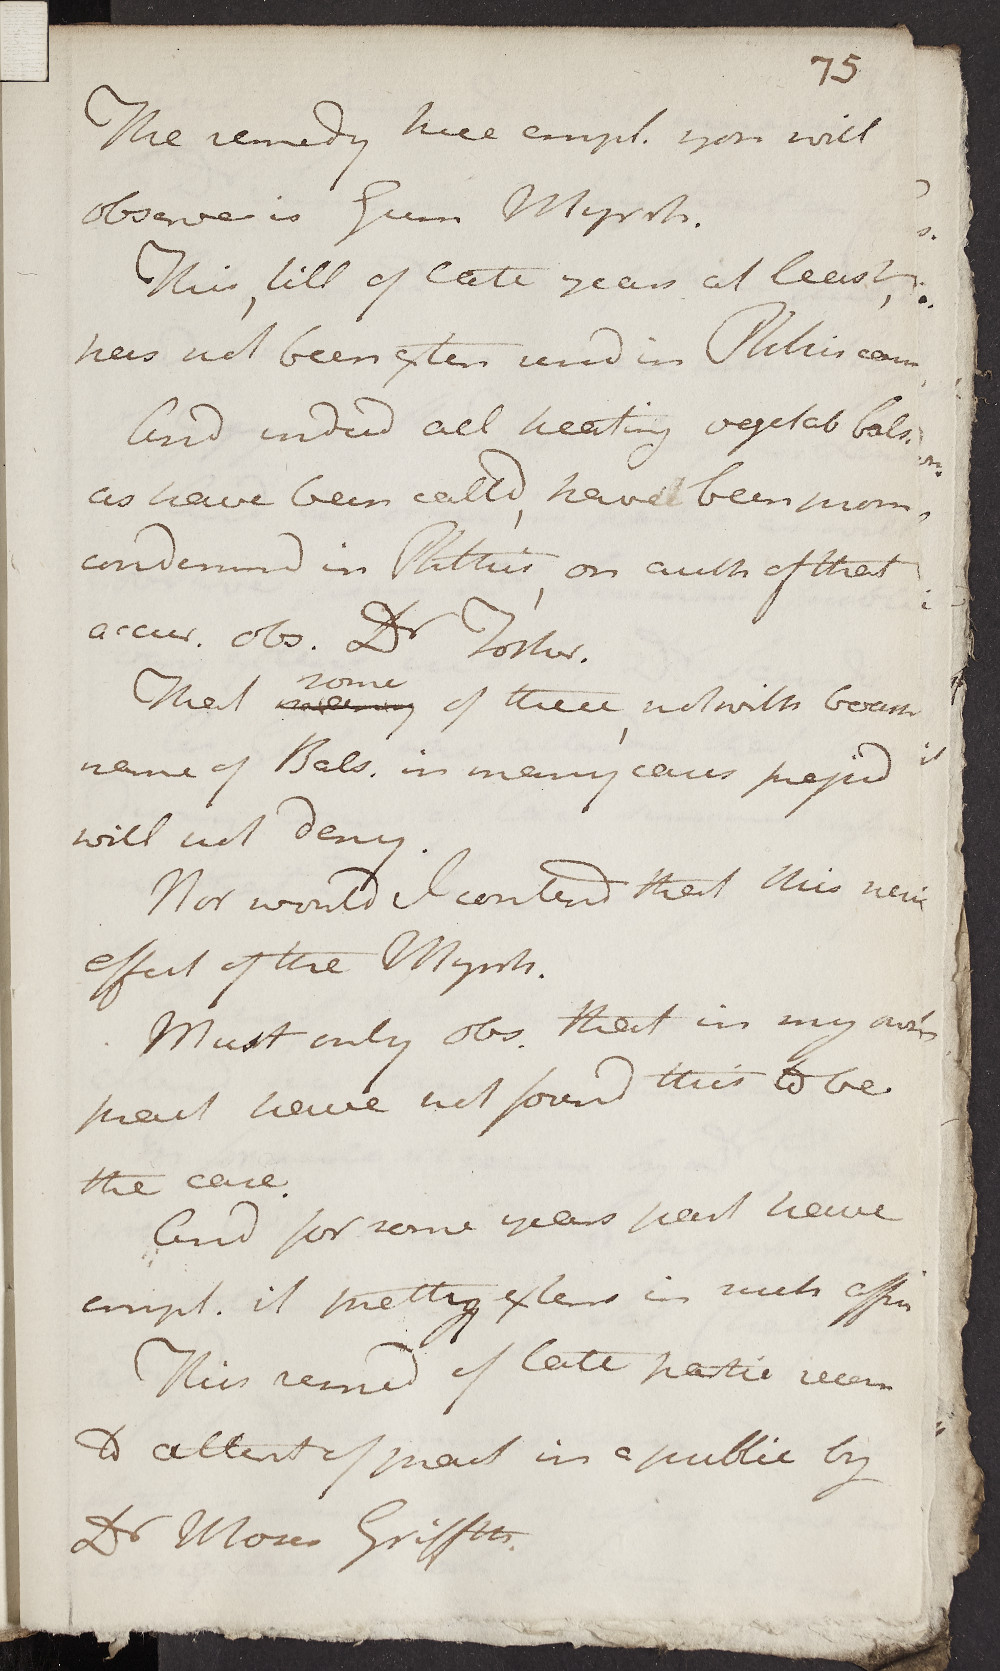 75
The remedy here empl. you will
observe is Gum Myrrh.
This, till of late years at least,
has not been exten used in Phthis cam
And indeed all heating vegetab bals.
as have been called, have been prom
condemned in Phthisis, on auth of that
accur. obs. Dr Fother.
some
That many of these, notwith boast
name of Bals. in many cases prejud
will not deny.
Nor would I contend that this nev
effect of the Myrrh.
Must only obs. that in my own
pract have not found this to be
the case.
And for some years past have
empl. it pretty extens in such affn
This remed of late partic recom
to attent of pract in a public by
Dr Moses Griffith.